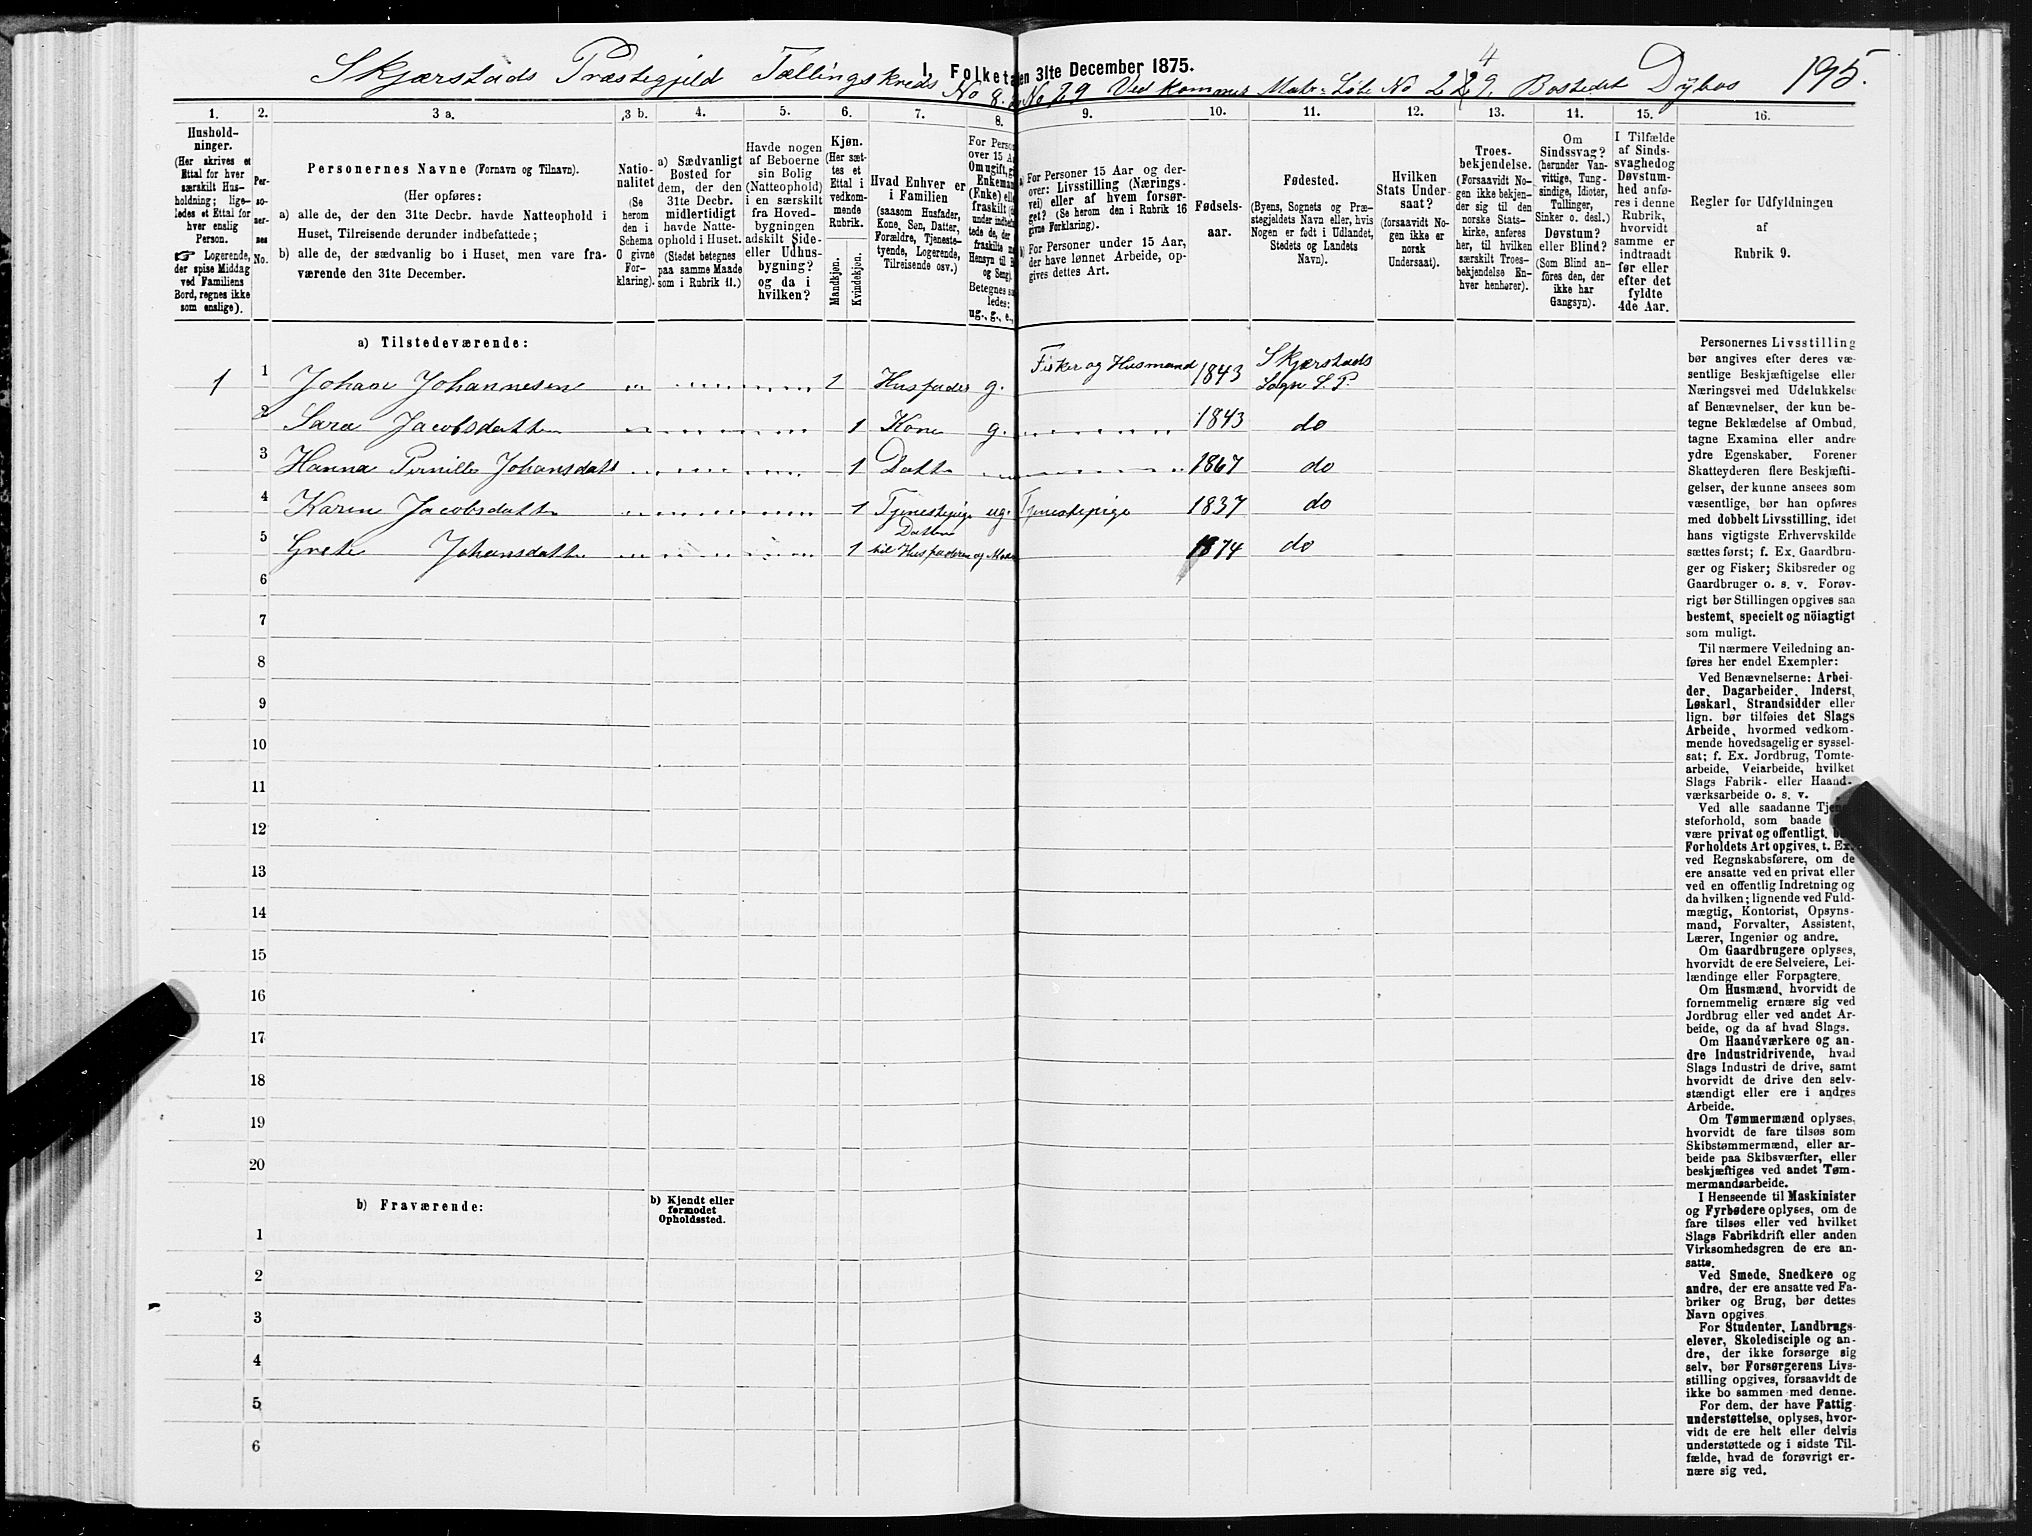 Skjærstads Præstegjeld Tællingskreds No 8. No 29 Vedkommer Matr: Löbe No 229. Bostedet Dybos 195.
4
I. Folketæ
en 31te December 1875.
1.
Hushold-
ninger.
(Her skrives et
Ettal for hver
særskilt Hus-
holdning; lige-
ledes et Ettal for
hver enslig
Person.
☞ Logerende,
der spise Middag
ved Familiens
Bord, regnes ikke
som enslige).
2.
Per-
so-
ner-
nes
No.
3 a.
Personernes Navne (Fornavn og Tilnavn).
(Her opføres:
a) alle de, der den 31te Decbr. havde Natteophold i
Huset, Tilreisende derunder indbefattede;
b) alle de, der sædvanlig bo i Huset, men vare fra-
værende den 31te December.
3 b.
Natio-
nalitet
(Se
herom
den i
Schema
O givne
For-
klaring).
4.
a) Sædvanligt
Bosted for
dem, der den
31te Decbr.
midlertidigt
havde Natte-
ophold i Huset.
(Stedet betegnes
paa samme Maade
som i Rubrik 11.)
5.
Havde nogen
af Beboerne
sin Bolig
(Natteophold)
i en særskilt
fra Hoved-
bygningen
adskilt Side-
eller Udhus-
bygning?
og da i
hvilken?
6.
Kjøn.
(Her sæt-
tes et
Ettal i
vedkom-
mende
Rubrik.
Mandkjøn.
Kvindekjøn.
7.
Hvad Enhver er
i Familien
(saasom Husfader,
Kone, Søn, Datter,
Forældre, Tjeneste-
tyende, Logerende,
Tilreisende osv.)
8.
For Person
over 15 A
Om ugift, gi
Enkeman
(Enke) elle
fraskilt
under indbef
tede de, de
fraskilte m
Hensyn til B
og Seng).
Betegnes sa
ledes:
ug., g., e.,
9.
a) For Personer 15 Aar og der-
over: Livsstilling (Nærings-
vei) eller af hvem forsør-
get? (Se herom den i Rubrik 16
givne Forklaring).
b) For Personer under 15 Aar,
der have lønnet Arbeide, op-
gives dettes Art.
10.
Fødsels-
aar.
11.
Fødested.
(Byens, Sognets og Præ-
stegjeldets Navn eller, hvis
Nogen er født i Udlandet,
Stedets og Landets
Navn).
12.
Hvilken
Stats Under-
saat?
(forsaavidt No-
gen ikke er
norsk
Undersaat).
13.
Troes-
bekjendelse.
(Forsaavidt No-
gen ikke bekjen-
der sig til den
norske Stats-
kirke, anføres
her, til hvilken
særskilt Troes-
bekjendelse En-
hver henhører).
14.
Om
Sindssvag?
(herunder Van-
vittige, Tung-
sindige, Idioter,
Tullinger,
Sinker o. desl.)
Døvstum?
eller Blind?
(Som Blind an-
føres den, der
ikke har
Gangsyn).
15.
I Tilfælde
af Sinds-
svaghedog
Døvstum-
hed anfø-
res i denne
Rubrik,
hvorvidt
samme er
indtraadt
før eller
efter det
fyldte
4de Aar.
16.
Regler for Udfyldningen
af
Rubrik 9.
a) Tilstedeværende:
1 1 Johan Johannesen 1 Husfader g. Fisker og Husmand 1843 Skjærstads
Sogn S. P.
2 Sara Jacobsdatter 1 Kone g. 1843 do
3 Hanna Pernille Johansdatt 1 Datter 1867 do
4 Karen Jacobsdatter 1 Tjenestepige ug. Tjenestepige 1837 do
5 Grete Johansdatter 1 Datter
til Husfaderen og Moder 1874 do
6
7
8
9
10
11
12
13
14
15
16
17
18
19
20
b) Fraværende:
b) Kjendt eller
formodet
Opholdssted.
1
2
3
4
5
6
Personernes Livsstilling
bør angives efter deres væ-
sentlige Beskjæftigelse eller
Næringsvei med Udelukkelse
af Benævnelser, der kun be-
tegne Beklædelse af Ombud,
tagne Examina eller andre
ydre Egenskaber. Forener
Skatteyderen flere Beskjæfti-
gelser, der kunne ansees som
væsentlige, bør han opføres
med dobbelt Livsstilling, idet
hans vigtigste Erhvervskilde
sættes først; f. Ex. Gaardbru-
ger og Fisker; Skibsreder og
Gaardbruger o. s. v. Forøv-
rigt bør Stillingen opgives saa
bestemt, specielt og nöiagtigt
som muligt.
Til nærmere Veiledning an-
føres her endel Exempler:
Ved Benævnelserne: Arbei-
der, Dagarbeider, Inderst,
Løskarl, Strandsidder eller
lign. bør tilføies det Slags
Arbeide, hvormed vedkom-
mende hovedsagelig er syssel-
sat; f. Ex. Jordbrug, Tomte-
arbeide, Veiarbeide, hvilket
Slags Fabrik- eller Haand-
værksarbeide o. s. v.
Ved alle saadanne Tjene-
steforhold, som baade
være privat og offentligt,
Forholdets Art opgives, t. Ex.
ved Regnskabsførere, om de
ere ansatte ved en privat eller
ved en offentlig Indretning og
da hvilken; lignende ved Fuld-
mægtig, Kontorist, Opsyns-
mand, Forvalter, Assistent,
Lærer, Ingeniør og andre.
Om Gaardbrugere oplyses,
hvorvidt de ere Selveiere, Lei-
lændinge eller Forpagtere.
Om Husmænd, hvorvidt de
fornemmelig ernære sig ved
Jordbrug eller ved andet Ar-
beide, og da af hvad Slags.
Om Haandværkere og an-
dre Industridrivende, hvad
Slags Industri de drive, samt
hvorvidt de drive den selv-
stændigt eller ere i andres
Arbeide.
Om Tømmermænd oplyses,
hvorvidt de fare tilsøs som
Skibstømmermænd, eller ar-
beide paa Skibsværfter, eller
beskjæftiges ved andet Tøm-
mermandsarbeide.
I Henseende til Maskinister
og Fyrbødere oplyses, om de
fare tilsøs eller ved hvilket
Slags Fabrikdrift eller anden
Virksomhedsgren de ere an-
satte.
Ved Smede, Snedkere og
andre, der ere ansatte ved Fa-
briker og Brug, bør dettes
Navn opgives
For Studenter, Landbrugs-
elever, Skoledisciple og an-
dre, der ikke forsørge sig
selv, bør Forsørgerens Livs-
stilling opgives, forsaavidt de
ikke bo sammen med denne.
For dem, der have Fattig-
understøttelse, oplyses, hvor-
vidt de ere helt eller delvis
understøttede og i sidste Til-
fælde, hvad de forøvrigt er-
nære sig ved.